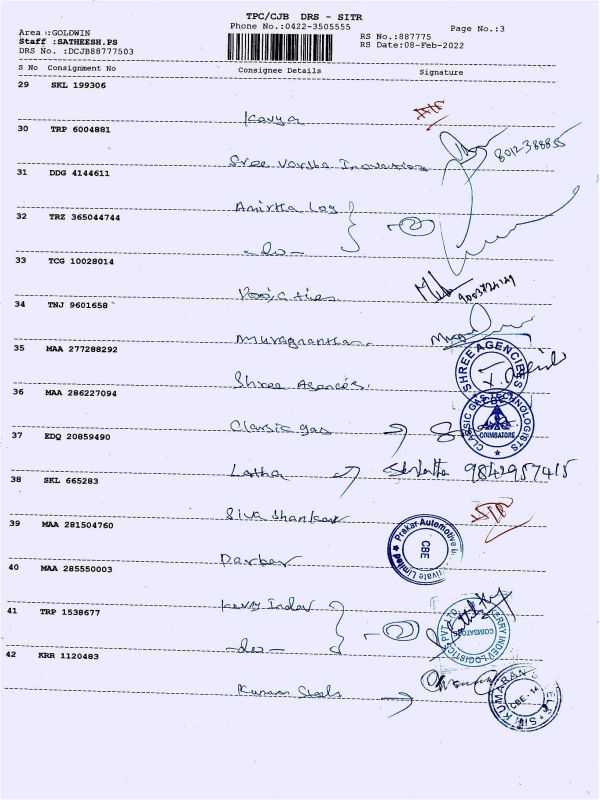 TPC/CJB DRS - SITR
Area :GOLDWIN Phone No.:0422-3505555 Page No.:3
Staff :SATHEESH.PS RS No.:887775
DRS No. :DCJB88777503 RS Date:08-Feb-2022
S No Consignment No Consignee Details Signature
29 SKL 199306
Kavya
30 TRP 6004881
Sree Varsha Inovation 8012388855
31 DDG 4144611
Amirtha Log
32 TRZ 365044744
-do-
33 TCG 10028014
9003724149
34 TNJ 9601658
Muruganantham
35 MAA 277288292
Shree Agencies. SHREE AGENCIES CBE
36 MAA 286227094
Classic gas CLASSIC GAS TECHNOLOGISTS COIMBATORE
37 EDQ 20859490
Latha 9842957415
38 SKL 665283
Siva Shankar
39 MAA 281504760
Darber Prakar Automotive Private Limited CBE
40 MAA 285550003
Kerry Indev
41 TRP 1538677
-do- KERRY INDEV LOGISTICS PVT LTD COIMBATORE
42 KRR 1120483
Kumaran Steels SRI KUMARAN STEELS CBE-14